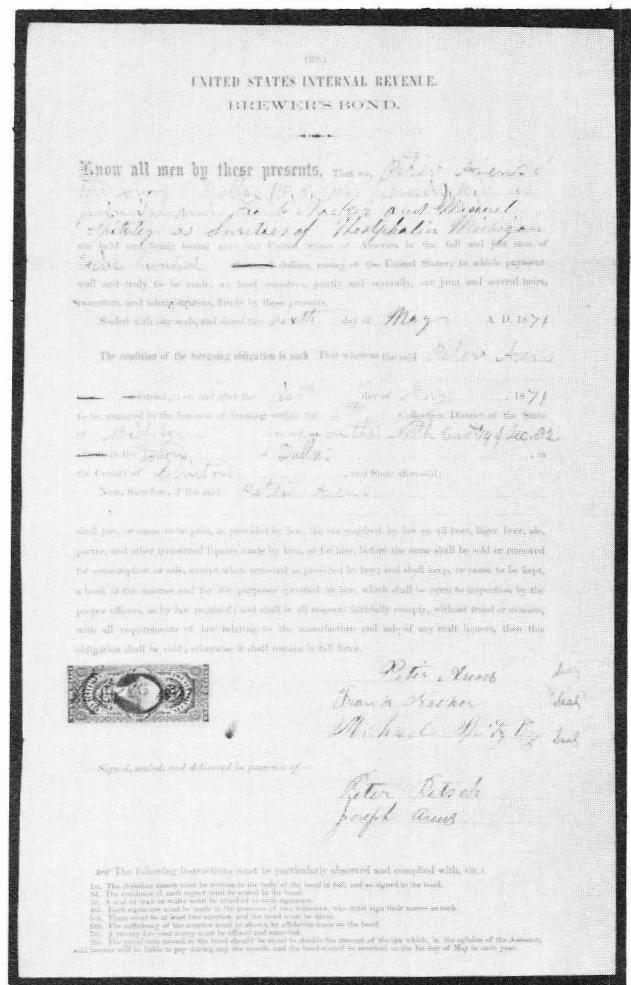 UNITED STATES INTERNAL REVENUE.
BREWER'S BOND.
Know all men by these presents, That we, Peter Arens of
principal and Frank and Michael
as Sureties of Westphalia Michigan
are held and firmly bound unto the United States of America in the full and just sum of
Five hundred dollars, money of the United States; to which payment
well and truly to be made, we bind ourselves, jointly and severally, our joint and several heirs,
executors, and administrators, firmly by these presents.
Sealed with our seals, and dated this day of May A. D. 1871
The condition of the foregoing obligation is such That whereas the said Peter Arens
on and after the day of May , 1871
to be, engaged in the business of brewing within the Collection District of the State
of Michigan on the North East 1/4 of Sec. 32
in the Town of Dallas , in
the County of Clinton , and State aforesaid:
Now, therefore, if the said Peter Arens
shall pay, or cause to be paid, as provided by law, the tax required by law on all beer, lager beer, ale,
porter, and other fermented liquors made by him, or for him, before the same shall be sold or removed
for consumption or sale, except when removed as provided by law; and shall keep, or cause to be kept,
a book in the manner and for the purposes specified by law, which shall be open to inspection by the
proper officers, as by law required; and shall in all respects faithfully comply, without fraud or evasion,
with all requirements of law relating to the manufacture and sale of any malt liquors, then this
obligation shall be void; otherwise it shall remain in full force.
Peter Arens Seal
Frank Seal
Michael Seal
Signed, sealed, and delivered in presence of—
Peter
Joseph Arens
The following instructions must be particularly observed and complied with, viz.:
1st. The christian names must be written in the body of the bond in full, and so signed to the bond.
2d. The residence of each signer must be stated in the bond.
3d. A seal of wax or wafer must be attached to each signature.
4th. Each signature must be made in the presence of two witnesses, who must sign their names as such.
5th. There must be at least two sureties and the bond must be dated.
6th. The sufficiency of the sureties must be shown by affidavits made on the bond.
7th. A twenty-five cent stamp must be affixed and canceled.
8th. The penal sum named in the bond should be equal to double the amount of the tax which, in the opinion of the Assessor,
said brewer will be liable to pay during any one month, and the bond should be renewed on the 1st day of May in each year.